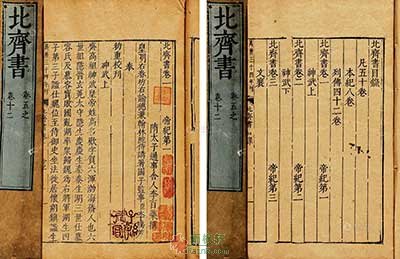 北齊書
卷五之
卷十二
北齊書卷一
帝紀第一
隋太子通事舍人李百藥撰
皇明
奉
敕重校刊
神武上
齊高祖神武皇帝姓高名歡字賀六渾渤海蓨人也六
世祖隱晉玄菟太守隱生慶慶生泰泰生湖三世仕慕
容氏及慕容寶敗國亂湖率眾歸魏為右將軍湖生四
子第三子謐仕魏位至侍御史坐法徙居懷朔鎮謐生
北齊書
卷五之
卷十二
北齊書目錄
凡五十卷
本紀八卷
列傳四十二卷
北齊書卷一
帝紀第一
神武上
北齊書卷二
帝紀第二
神武下
北齊書卷三
帝紀第三
文襄